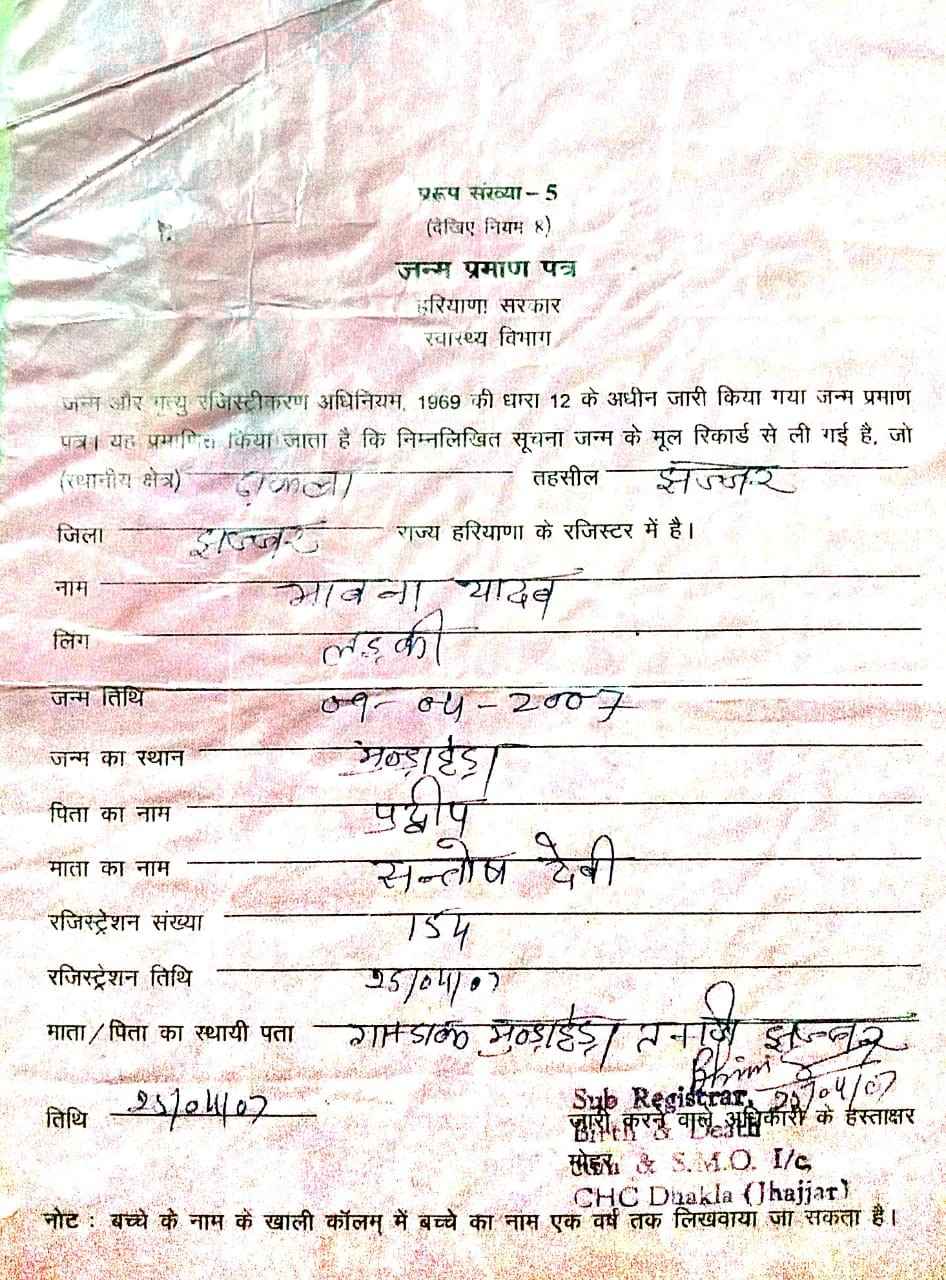 प्ररूप संख्या – 5
(देखिए नियम ४)
जन्म प्रमाण पत्र
हरियाणा सरकार
स्वास्थ्य विभाग
जन्म और मृत्यु रजिस्ट्रीकरण अधिनियम, 1969 की धारा 12 के अधीन जारी किया गया जन्म प्रमाण
पत्र। यह प्रमाणित किया जाता है कि निम्नलिखित सूचना जन्म के मूल रिकार्ड से ली गई है, जो
(स्थानीय क्षेत्र) ढ़ाकला तहसील झज्जर
जिला झज्जर राज्य हरियाणा के रजिस्टर में है।
नाम भावना यादव
लिंग लड़की
जन्म तिथि
जन्म का स्थान मुन्डाहेड़ा
पिता का नाम प्रद्वीप
माता का नाम सन्तोष देवी
रजिस्ट्रेशन संख्या 154
रजिस्ट्रेशन तिथि 25/04/07
माता/पिता का स्थायी पता मुन्डाहेड़ा झज्जर
तिथि 25/04/07
Sub Registrar,
जारी करने वाले अधिकारी के हस्ताक्षर
Birth & Death
मोहर
& S.M.O. I/c,
CHC Dhakla (Jhajjar)
नोट : बच्चे के नाम के खाली कॉलम् में बच्चे का नाम एक वर्ष तक लिखवाया जा सकता है।